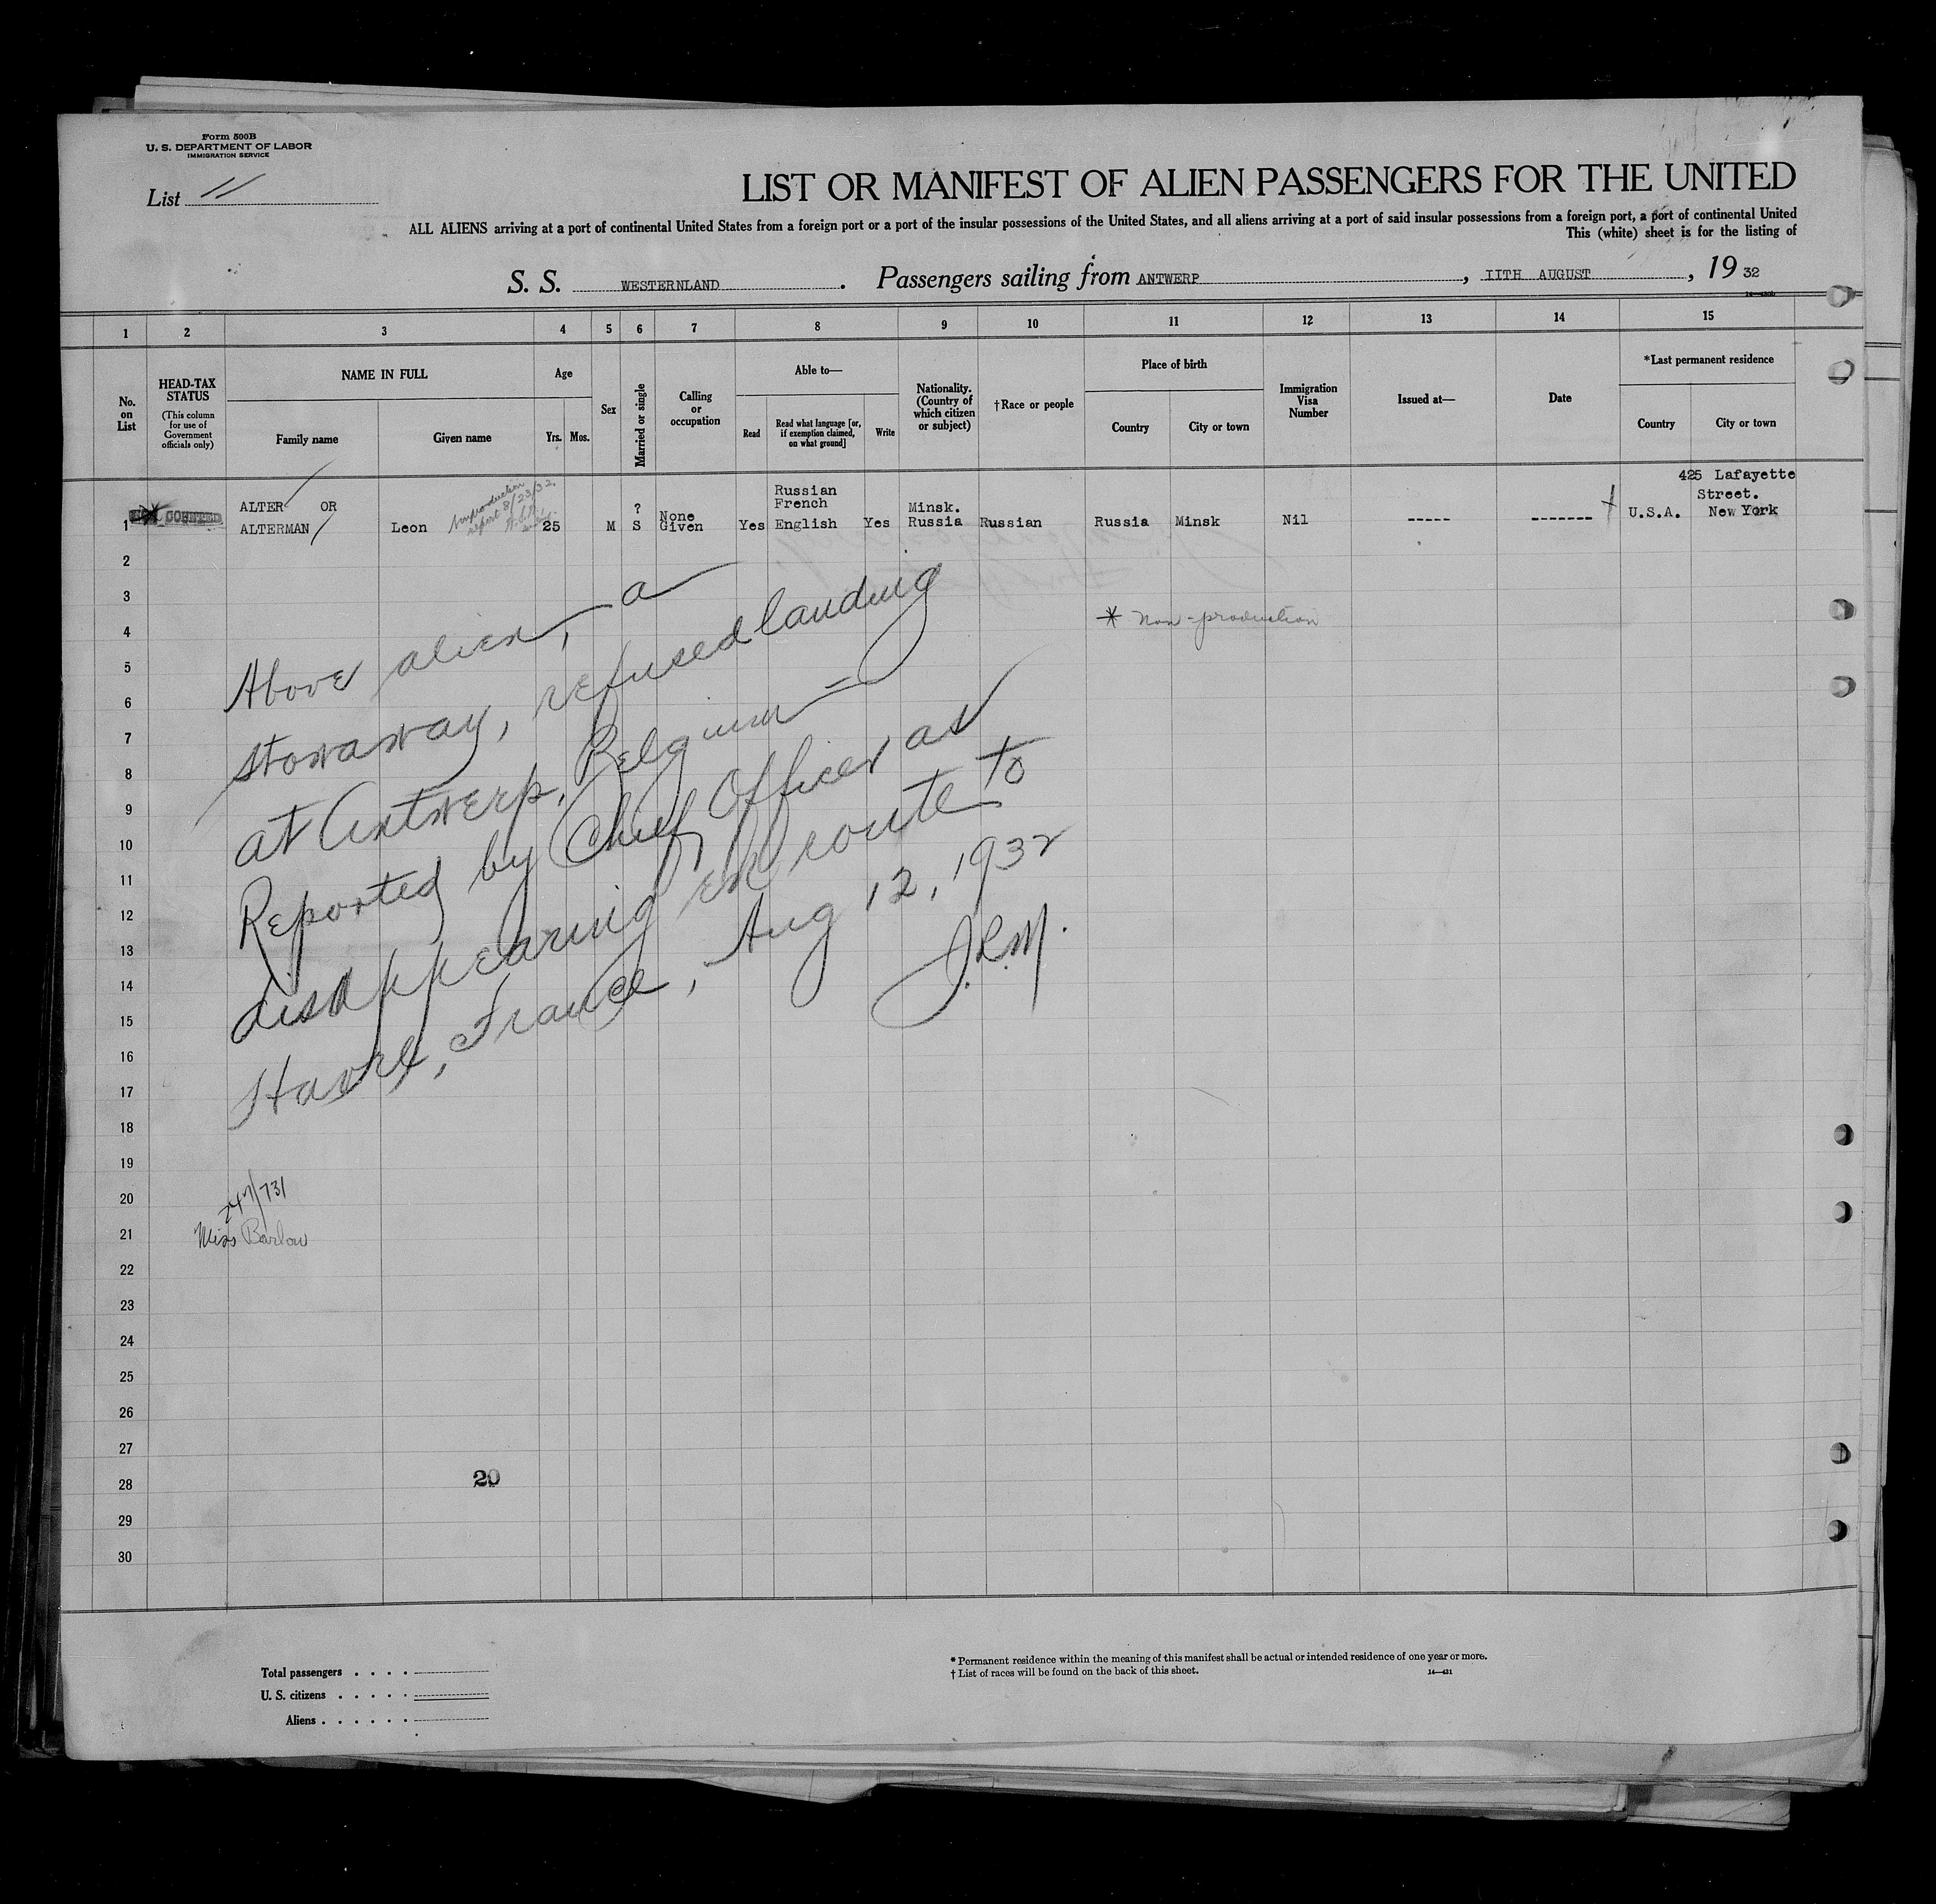 Form 500B
U. S. DEPARTMENT OF LABOR
IMMIGRATION SERVICE
List 11
LIST OR MANIFEST OF ALIEN PASSENGERS FOR THE UNITED
ALL ALIENS arriving at a port of continental United States from a foreign port or a port of the insular possessions of the United States, and all aliens arriving at a port of said insular possessions from a foreign port, a port of continental United
This (white) sheet is for the listing of
S. S. WESTERNLAND . Passengers sailing from ANTWERP , IITH AUGUST , 19 32
1 2 3 4 5 6 7 8 9 10 11 12 13 14 15
No. on List
HEAD-TAX STATUS
(This column for use of Government officials only)
NAME IN FULL
Family name
Given name
Age
Yrs. Mos.
Sex
Married or single
Calling or occupation
Able to—
Read
Read what language [or, if exemption claimed, on what ground]
Write
Nationality. (Country of which citizen or subject)
†Race or people
Place of birth
Country
City or town
Immigration Visa Number
Issued at—
Date
*Last permanent residence
Country
City or town
1
ALTER OR
ALTERMAN
Leon
8/23/32
25
M
?
S
None
Given
Yes
Russian
French
English
Yes
Minsk.
Russia
Russian
Russia
Minsk
Nil
-----
-------
U.S.A.
425 Lafayette
Street.
New York
2
3
4
5
6
7
8
9
10
11
12
13
14
15
16
17
18
19
20
21
22
23
24
25
26
27
28
29
30
* Non-production
Above alien, a
stowaway, refused landing
at Antwerp, Belgium =
Reported by Chief Officer as
disappearing en route to
Havre, France, Aug 12, 1932
J.R.M.
247/731
Miss Barlow
20
Total passengers . . . .
U. S. citizens . . . . .
Aliens . . . . . .
* Permanent residence within the meaning of this manifest shall be actual or intended residence of one year or more.
† List of races will be found on the back of this sheet.
14—431